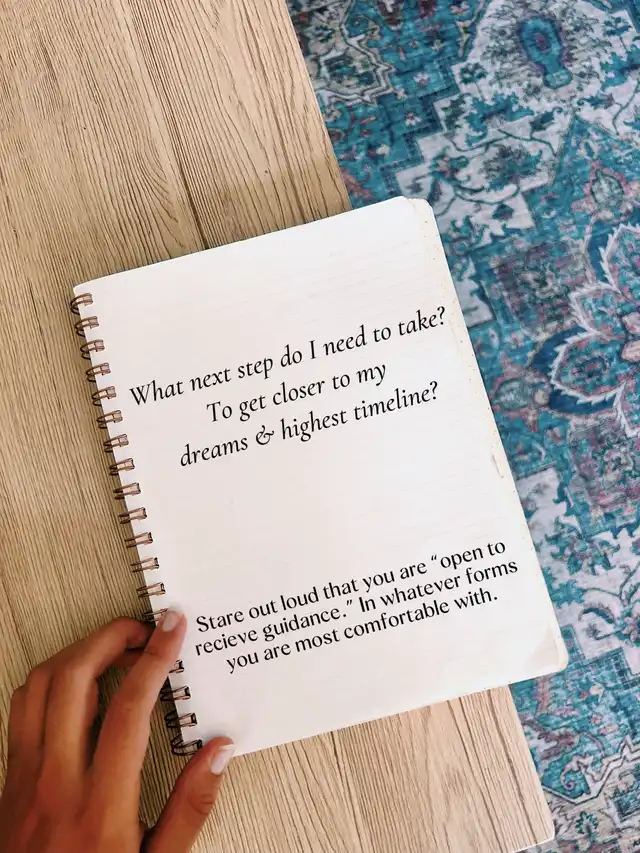 What next step do I need to take?
To get closer to my
dreams & highest timeline?
Stare out loud that you are “open to
recieve guidance.” In whatever forms
you are most comfortable with.